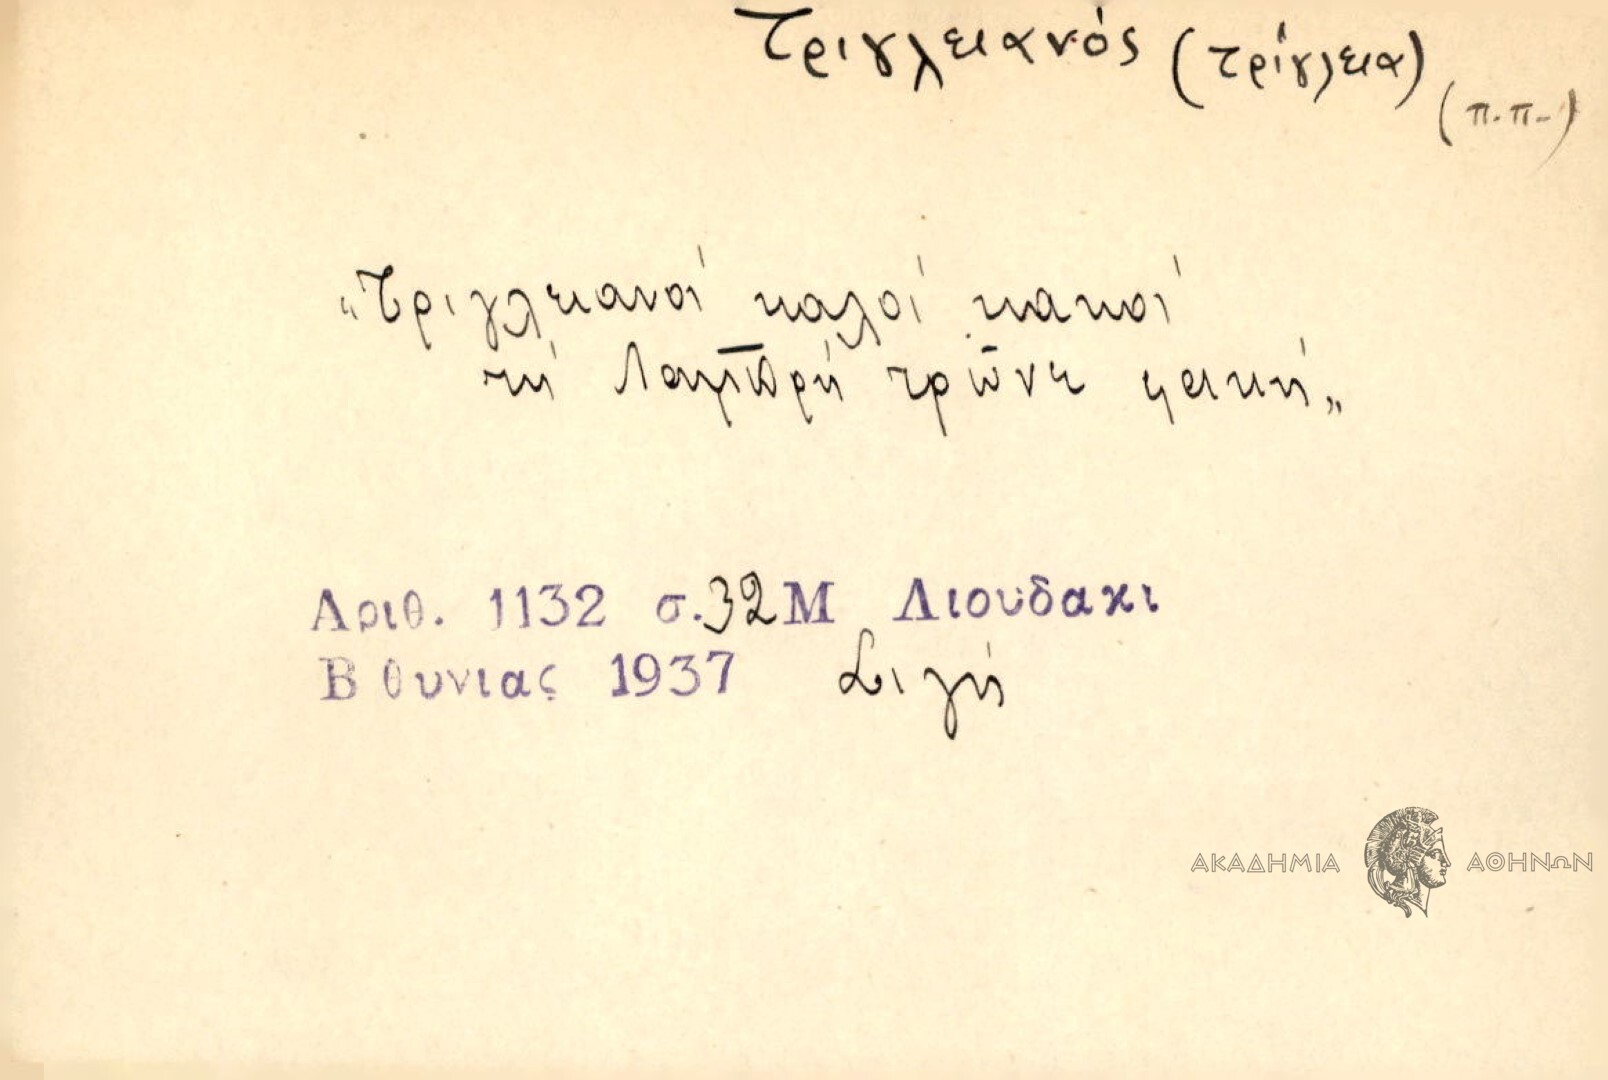 Τριγλειανός (Τρίγλεια) (π.π.)
"Τριγλειανοί καλοί κακοί
τή Λαμπρή τρῶνε φακή"
Αριθ. 1132 σ. 32 Μ Λιουδακι
Β θυνιας 1937 Σιγή
ΑΚΑΔΗΜΙΑ ΑΘΗΝΩΝ